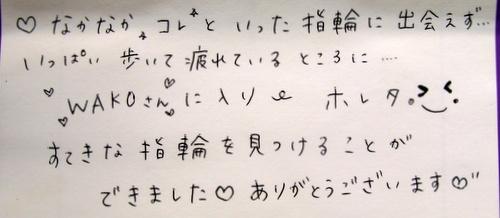 ♡ なかなか "コレ"と いった 指輪に 出会えず…
いっぱい 歩いて 疲れている ところに ‥‥
♡WAKOさん♡に入り ホレタ。
すてきな 指輪を見つけることが
できました♡ ありがとうございます♡"